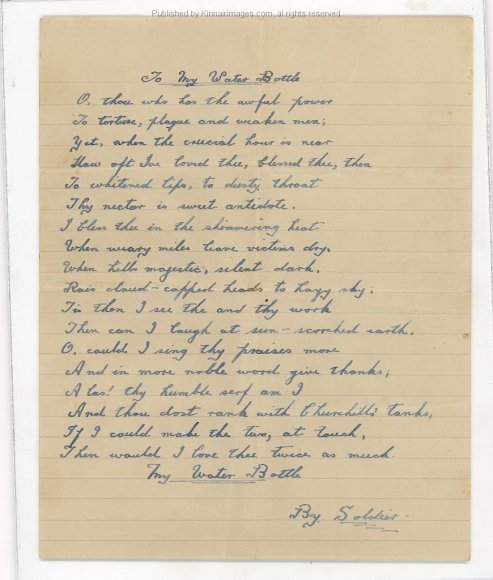 Published by Kinnarimages.com, all rights reserved
To My Water Bottle
O, thou who has the awful power
To torture, plague and weaken men;
Yet, when the crucial hour is near
How oft I've loved thee, blessed thee, then
To whitened lips, to dusty throat
Thy nectar is sweet antidote.
I bless thee in the shimmering heat
When weary miles leave victims dry.
When hills majestic, silent dark.
Rais cloud-capped heads to hazy sky;
Tis then I see the and thy work
Then can I laugh at sun-scorched earth.
O, could I sing thy praises more
And in more noble word give thanks,
Alas! thy humble serf am I
And thou dost rank with Churchill's tanks,
If I could make the two, at touch,
Then would I love thee twice as much.
My Water Bottle
By, Soldier-